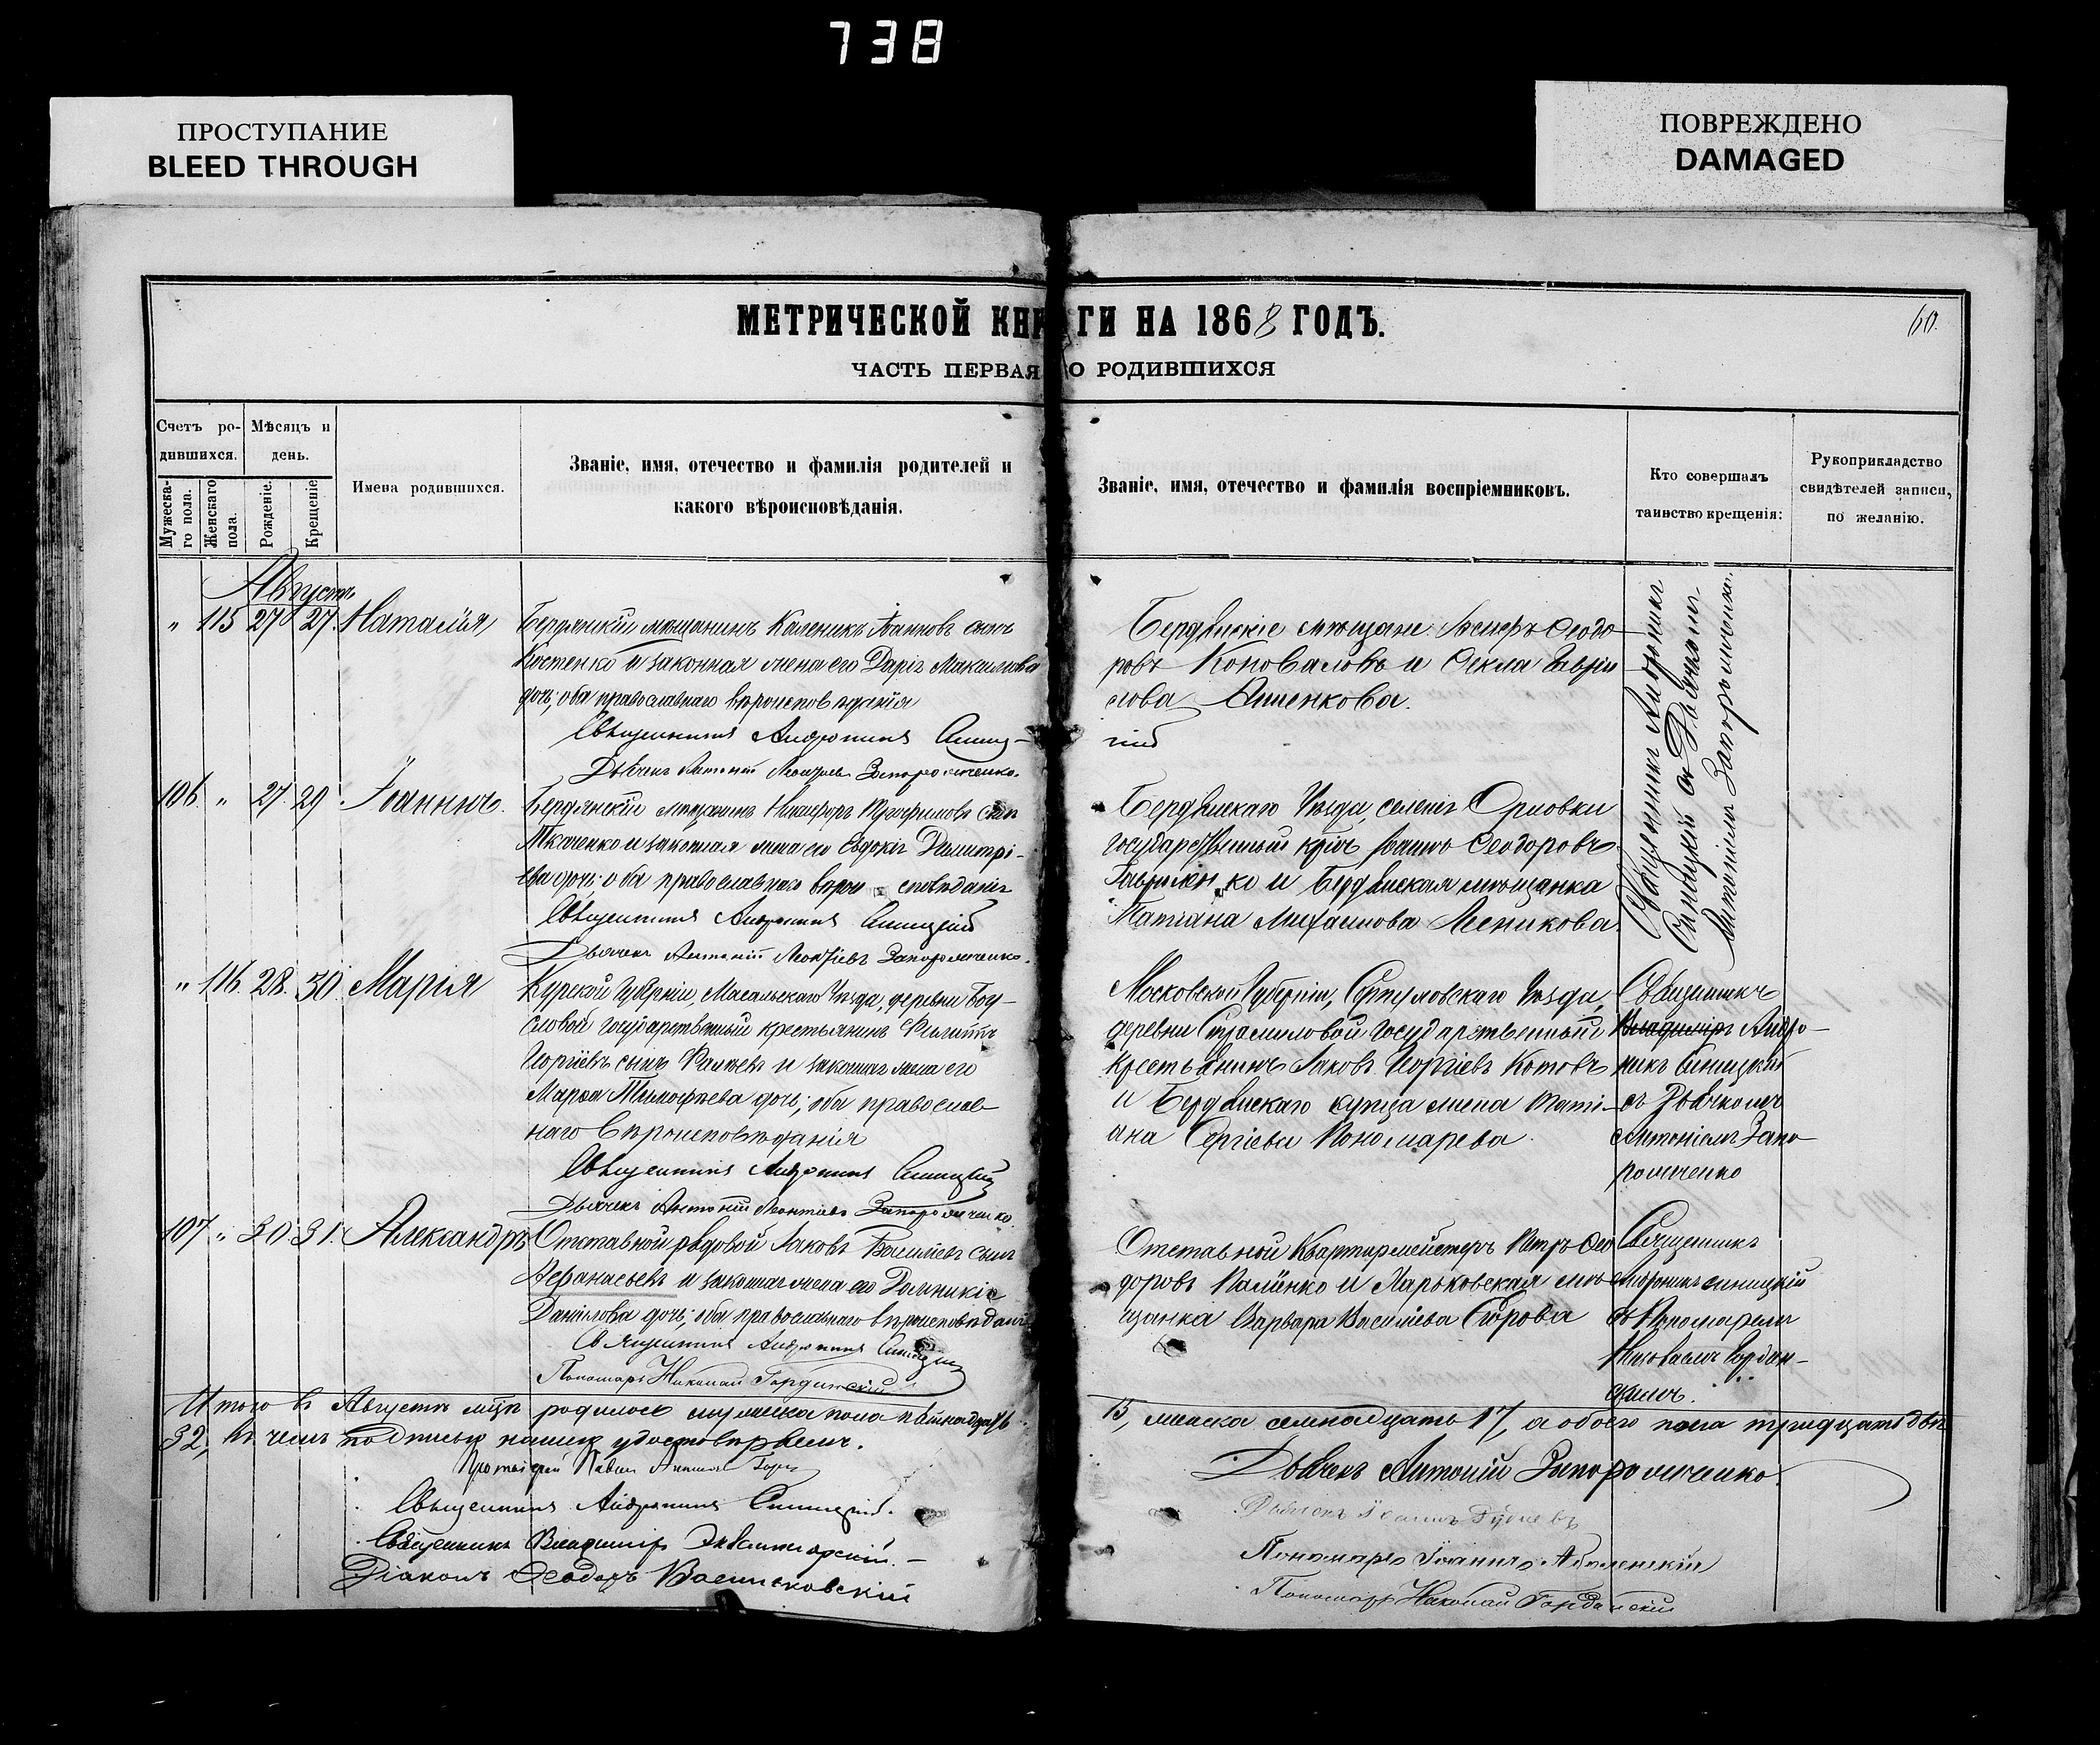 738
ПРОСТУПАНИЕ
BLEED THROUGH
ПОВРЕЖДЕНО
DAMAGED
МЕТРИЧЕСКОЙ КНИГИ НА 1868 ГОДЪ.
60.
ЧАСТЬ ПЕРВАЯ О РОДИВШИХСЯ
Счетъ ро-
дившихся.
Мужеска-
го пола.
Женскаго
пола.
Мѣсяцъ и
день.
Рожденіе.
Крещеніе
Имена родившихся.
Званіе, имя, отечество и фамилія родителей и
какого вѣроисповѣданія.
Званіе, имя, отечество и фамилія воспріемниковъ.
Кто совершалъ
таинство крещенія:
Рукоприкладство
свидѣтелей записи,
по желанію.
Августъ
" 115 27 27. Наталія
Бердянскій мѣщанинъ Каленикъ Іоанновъ сынъ
Костенко и законная жена его Дарія Максимова
дочь; оба православнаго вѣроисповѣданія
Священникъ Андроникъ Синиц-
кій
Дьячекъ Антоній Леонтіевъ Запорожченко.
Бердянскіе мѣщане Ѳеодо
ровъ Коноваловъ и Ѳекла
Священникъ Андроникъ
Синицкій съ Дьячкомъ
Антоніемъ Запорожченко.
106. " 27. 29 Іоаннъ.
Бердянскій мѣщанинъ Никифоръ Трофимовъ сынъ
Ткаченко и законная жена его Евдокія Димитрі-
ева дочь; оба православнаго вѣроисповѣданія
Священникъ Андроникъ Синицкій
Дьячекъ Антоній Леонтіевъ Запорожченко.
Бердянскаго Уѣзда, селенія Орловки
государственный кр-нъ Іоаннъ Ѳеодоровъ
Гавриленко и Бердянская мѣщанка
Татіана Михаилова
" 116. 28. 30. Марія
Курской Губерніи, уѣзда, деревни
государственный крестьянинъ Филиппъ
Георгіевъ сынъ и законная жена его
Марѳа Тимоѳеева дочь; оба православ-
наго вѣроисповѣданія
Священникъ Андроникъ Синицкій
Дьячекъ Антоній Леонтіевъ Запорожченко.
Московской Губерніи, Серпуховскаго Уѣзда,
деревни государственный
крестьянинъ Яковъ Георгіевъ Котовъ
и Бердянскаго купца жена Тати-
ана Сергіева Пономарева.
Священникъ
Владиміръ Андро-
никъ Синицкій
съ Дьячкомъ
Антоніемъ Запо-
рожченко
107 " 30. 31. Александръ
Отставной рядовой Яковъ Василіевъ сынъ
Аѳанасьевъ и законная жена его Домникія
Даніилова дочь; оба православнаго вѣроисповѣданія
Священникъ Андроникъ Синицкій
Пономарь Николай Горданскій
Отставной Квартирмейстеръ Петръ Ѳео
доровъ и Харьковская мѣ-
щанка Варвара Василіева
Священникъ
Андроникъ Синицкій
съ Пономаремъ
Николаемъ Гордан-
скимъ.
Итого въ Августѣ м-цѣ родилось мужеска пола пятнадцать
15, женска семнадцать 17, а обоего пола тридцать два
32, въ чемъ подписью нашею удостовѣряемъ.
Протоіерей Павелъ
Священникъ Андроникъ Синицкій.
Священникъ Владиміръ
Діаконъ Ѳеодоръ Васильковскій
Дьячекъ Антоній Запорожченко.
Дьячекъ Іоаннъ
Пономарь Іоаннъ
Пономарь Николай Горданскій